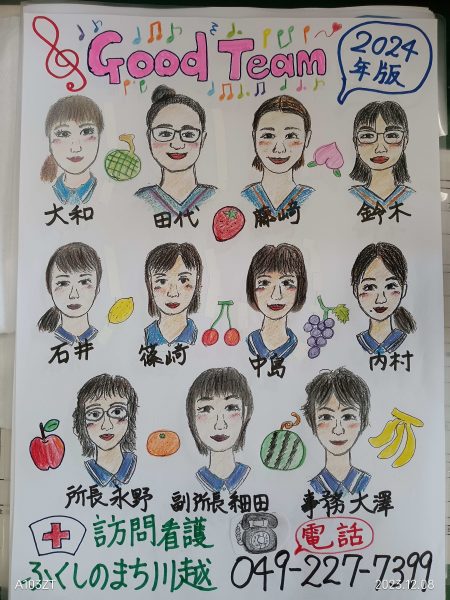 Good Team
2024
年版
大和 田代 藤崎 鈴木
石井 篠崎 中島 内村
所長 永野 副所長 細田 事務 大澤
訪問看護 電話
ふくしのまち川越 049-227-7399
A103ZT 2023.12.08